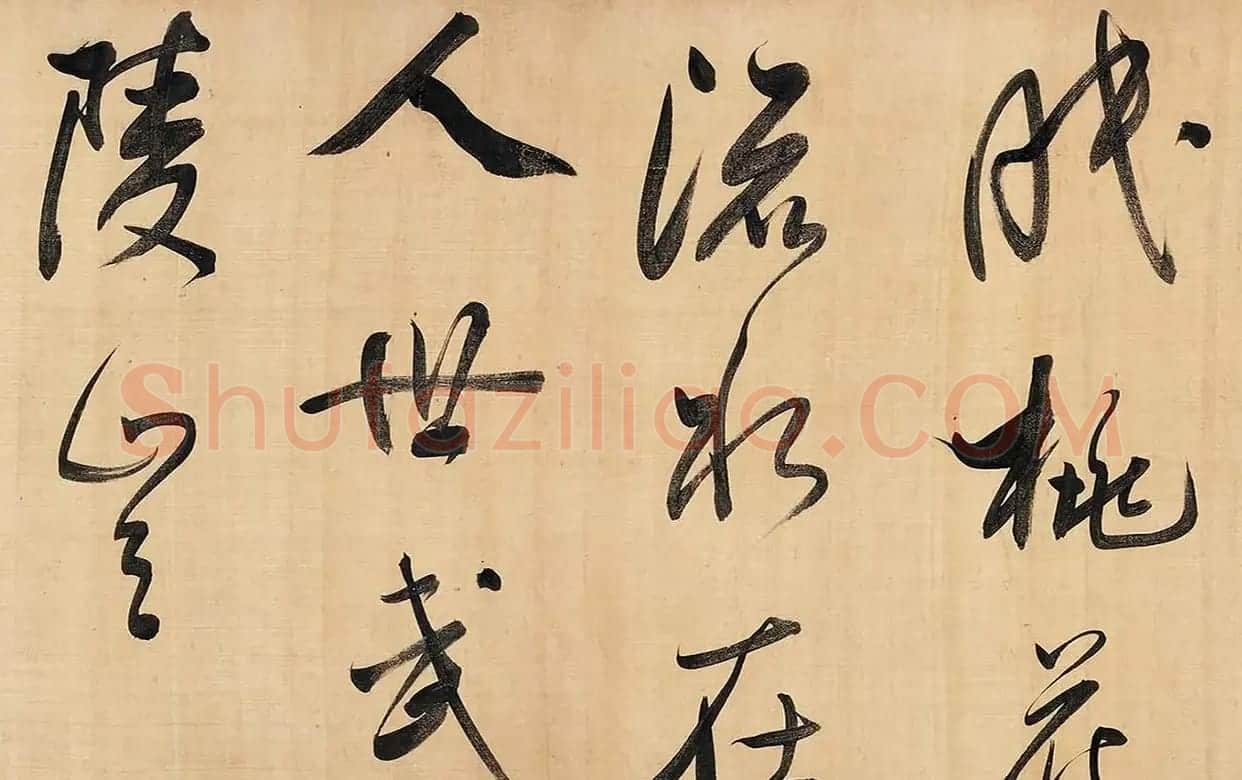 眠桃花
流水在
人世武
陵豈
Shufaziliao.COM